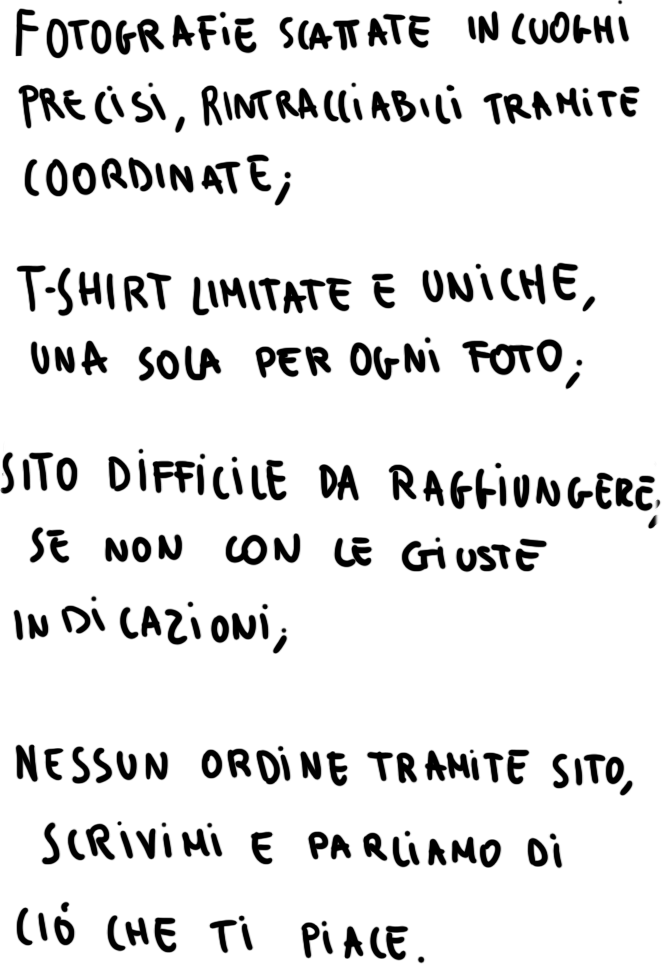 FOTOGRAFIE SCATTATE IN LUOGHI
PRECISI, RINTRACCIABILI TRAMITE
COORDINATE;
T-SHIRT LIMITATE E UNICHE,
UNA SOLA PER OGNI FOTO;
SITO DIFFICILE DA RAGGIUNGERE,
SE NON CON LE GIUSTE
INDICAZIONI;
NESSUN ORDINE TRAMITE SITO,
SCRIVIMI E PARLIAMO DI
CIÓ CHE TI PIACE.